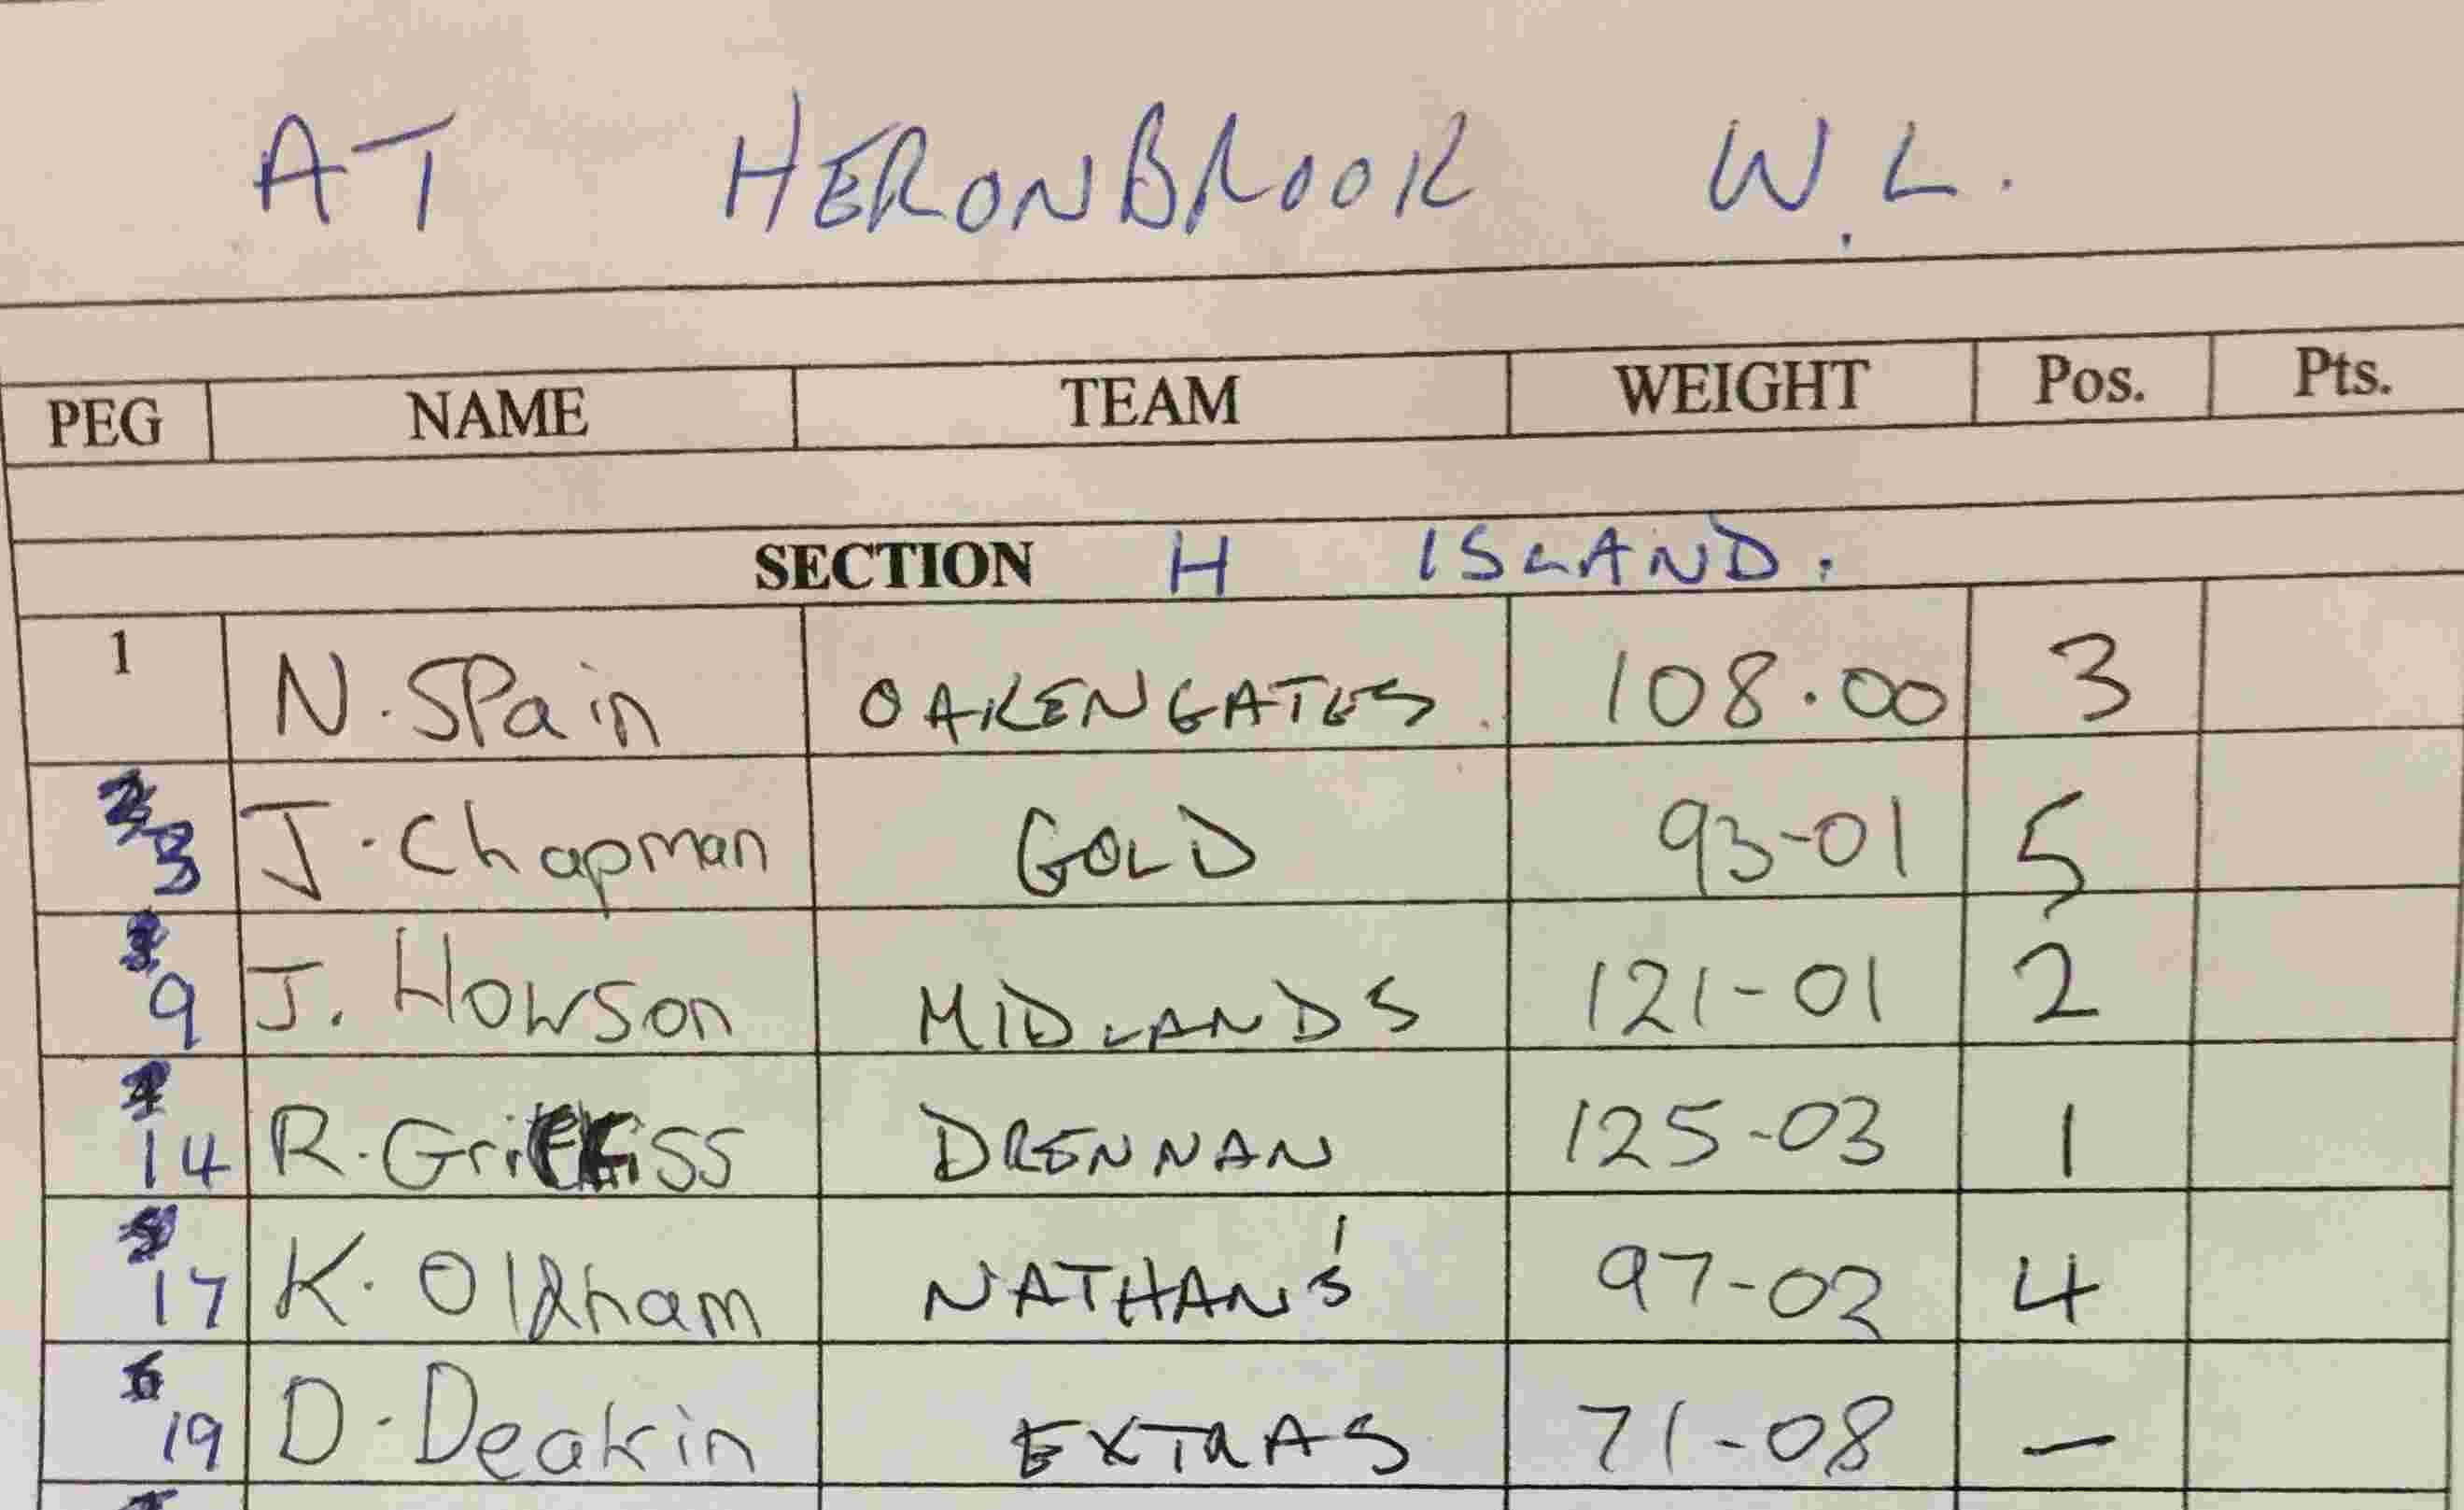 AT HERONBROOK W.L.
PEG NAME TEAM WEIGHT Pos. Pts.
SECTION H ISLAND.
1 N. SPain OAKENGATES 108.00 3
3 J. Chapman GOLD 93-01 5
9 J. Howson MIDLANDS 121-01 2
14 R. DRENNAN 125-03 1
17 K. Oldham NATHAN'S 97-02 4
19 D. Deakin EXTRAS 71-08 —